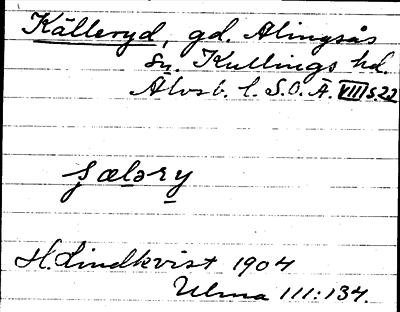 Källeryd, gd. Alingsås
sn. Kullings hd.
Älvsb. l. S.O.Ä. VIII s.22
şæləry
H. Lindkvist 1904
Ulma 111:134.